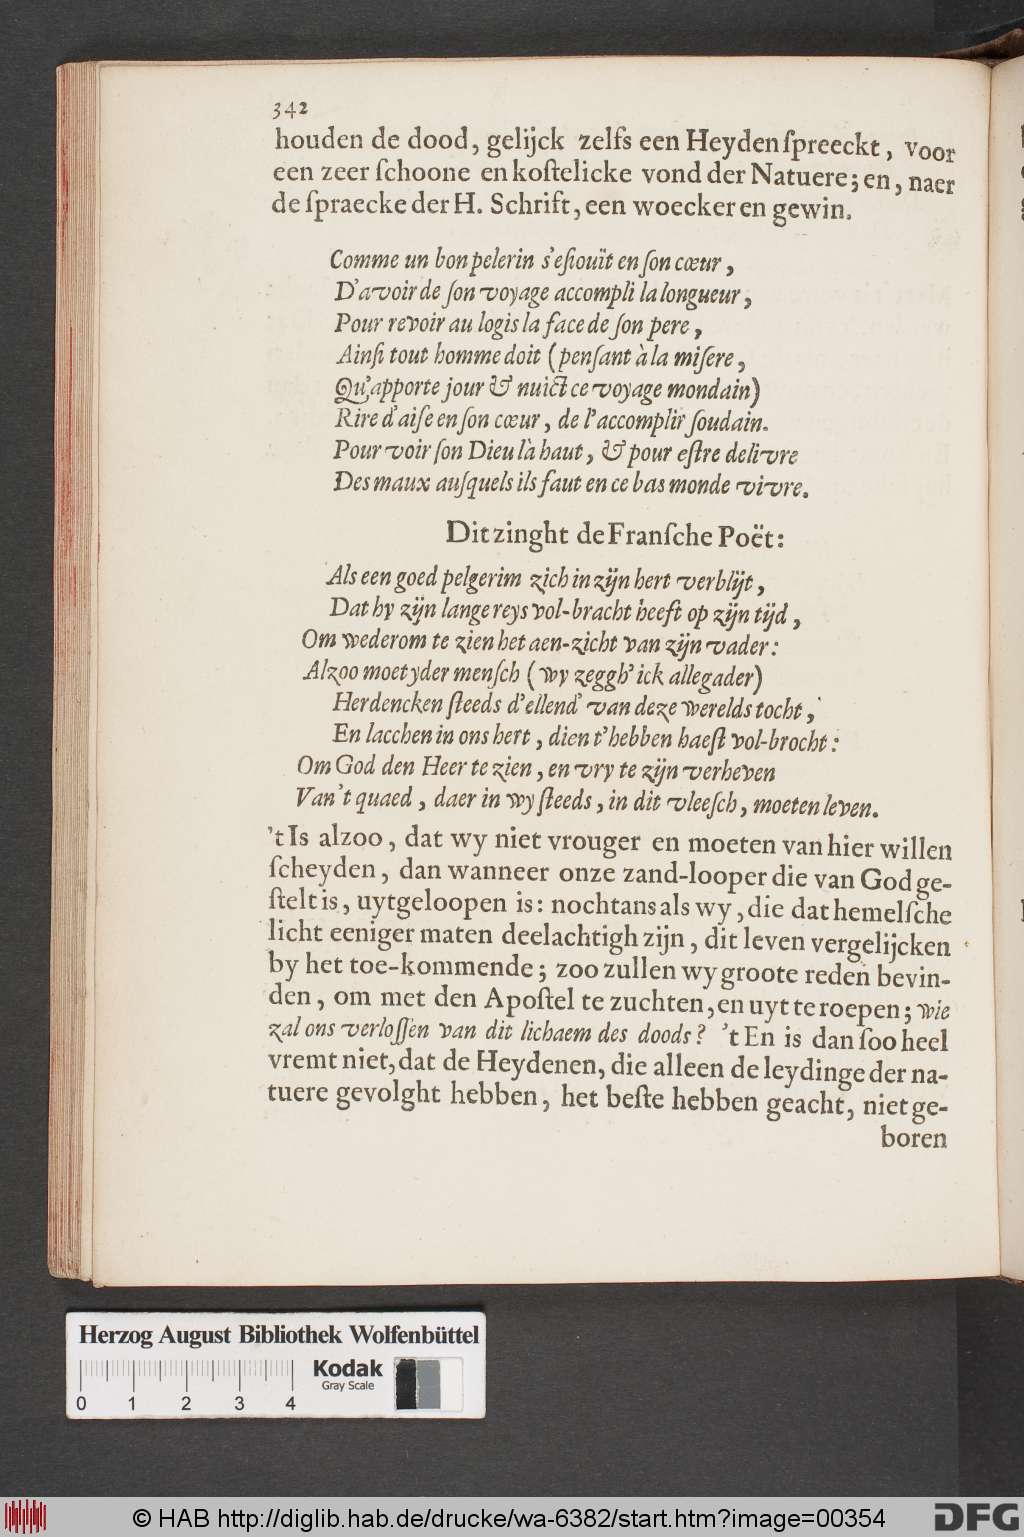 342
houden de dood, gelijck zelfs een Heyden ſpreeckt, voor
een zeer ſchoone en koſtelicke vond der Natuere; en, naer
de ſpraecke der H. Schrift, een woecker en gewin.
Comme un bon pelerin s'eſiouït en ſon cœur,
D'avoir de ſon voyage accompli la longueur,
Pour revoir au logis la face de ſon pere,
Ainſi tout homme doit (penſant à la miſere,
Qu'apporte jour & nuict ce voyage mondain)
Rire d'aiſe en ſon cœur, de l'accomplir ſoudain.
Pour voir ſon Dieu là haut, & pour eſtre delivre
Des maux auſquels ils faut en ce bas monde vivre.
Dit zinght de Franſche Poët:
Als een goed pelgerim zich in zijn hert verblijt,
Dat hy zijn lange reys vol-bracht heeft op zijn tijd,
Om wederom te zien het aen-zicht van zijn vader:
Alzoo moet yder menſch (wy zeggh' ick allegader)
Herdencken ſteeds d'ellend' van deze werelds tocht,
En lacchen in ons hert, dien t'hebben haeſt vol-brocht:
Om God den Heer te zien, en vry te zijn verheven
Van't quaed, daer in wy ſteeds, in dit vleeſch, moeten leven.
't Is alzoo, dat wy niet vrouger en moeten van hier willen
ſcheyden, dan wanneer onze zand-looper die van God ge-
ſtelt is, uytgeloopen is: nochtans als wy, die dat hemelſche
licht eeniger maten deelachtigh zijn, dit leven vergelijcken
by het toe-kommende; zoo zullen wy groote reden bevin-
den, om met den Apoſtel te zuchten, en uyt te roepen; wie
zal ons verloſſen van dit lichaem des doods? 't En is dan ſoo heel
vremt niet, dat de Heydenen, die alleen de leydinge der na-
tuere gevolght hebben, het beſte hebben geacht, niet ge-
boren
Herzog August Bibliothek Wolfenbüttel
Kodak
Gray Scale
0 1 2 3 4
© HAB http://diglib.hab.de/drucke/wa-6382/start.htm?image=00354
DFG